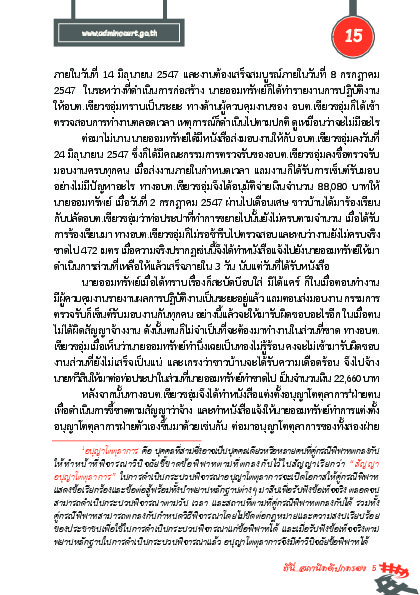 www.admincourt.go.th
15
ภายในวันที่ 14 มิถุนายน 2547 และงานต้องเสร็จสมบูรณ์ภายในวันที่ 8 กรกฎาคม
2547 ในระหว่างที่ดำเนินการก่อสร้าง นายออมทรัพย์ก็ได้ทำรายงานการปฏิบัติงาน
ให้อบต.เขียวชอุ่มทราบเป็นระยะ ทางด้านผู้ควบคุมงานของ อบต.เขียวชอุ่มก็ได้เข้า
ตรวจสอบการทำงานตลอดเวลา เหตุการณ์ก็ดำเนินไปตามปกติ ดูเหมือนว่าจะไม่มีอะไร
ต่อมาไม่นาน นายออมทรัพย์ได้มีหนังสือส่งมอบงานให้กับ อบต.เขียวชอุ่มลงวันที่
24 มิถุนายน 2547 ซึ่งก็ได้มีคณะกรรมการตรวจรับของอบต.เขียวชอุ่มลงชื่อตรวจรับ
มอบงานครบทุกคน เมื่อส่งงานภายในกำหนดเวลา แถมงานก็ได้รับการเซ็นต์รับมอบ
อย่างไม่มีปัญหาอะไร ทางอบต.เขียวชอุ่มจึงได้อนุมัติจ่ายเงินจำนวน 88,080 บาทให้
นายออมทรัพย์ เมื่อวันที่ 2 กรกฎาคม 2547 ผ่านไปเดือนเศษ ชาวบ้านได้มาร้องเรียน
กับปลัดอบต.เขียวชอุ่มว่าท่อประปาที่ทำการขยายไปนั้นยังไม่ครบตามจำนวน เมื่อได้รับ
การร้องเรียนมา ทางอบต.เขียวชอุ่มก็ไม่รอช้ารีบไปตรวจสอบและพบว่างานยังไม่ครบจริง
ขาดไป 472 เมตร เมื่อความจริงปรากฏเช่นนี้จึงได้ทำหนังสือแจ้งไปยังนายออมทรัพย์ให้มา
ดำเนินการส่วนที่เหลือให้แล้วเสร็จภายใน 3 วัน นับแต่วันที่ได้รับหนังสือ
นายออมทรัพย์เมื่อได้ทราบเรื่องก็สะบัดบ๊อบใส่ มิได้แคร์ ก็ในเมื่อตอนทำงาน
มีผู้ควบคุมงานรายงานผลการปฏิบัติงานเป็นระยะอยู่แล้ว แถมตอนส่งมอบงาน กรรมการ
ตรวจรับก็เซ็นต์รับมอบงานกันทุกคน อย่างนี้แล้วจะให้มารับผิดชอบอะไรอีก ในเมื่อตน
ไม่ได้ผิดสัญญาจ้างงาน ดังนั้นตนก็ไม่จำเป็นที่จะต้องมาทำงานในส่วนที่ขาด ทางอบต.
เขียวชอุ่มเมื่อเห็นว่านายออมทรัพย์ทำนิ่งเฉยเป็นทองไม่รู้ร้อน คงจะไม่เข้ามารับผิดชอบ
งานส่วนที่ยังไม่เสร็จเป็นแน่ และเกรงว่าชาวบ้านจะได้รับความเดือดร้อน จึงไปจ้าง
นายกวีสินให้มาต่อท่อประปาในส่วนที่นายออมทรัพย์ทำขาดไป เป็นจำนวนเงิน 22,660 บาท
หลังจากนั้นทางอบต.เขียวชอุ่มจึงได้ทำหนังสือแจ้งแต่งตั้งอนุญาโตตุลาการ¹ฝ่ายตน
เพื่อดำเนินการชี้ขาดตามสัญญาว่าจ้าง และทำหนังสือแจ้งให้นายออมทรัพย์ทำการแต่งตั้ง
อนุญาโตตุลาการฝ่ายตัวเองขึ้นมาด้วยเช่นกัน ต่อมาอนุญาโตตุลาการของทั้งสองฝ่าย
¹อนุญาโตตุลาการ คือ บุคคลที่สามซึ่งอาจเป็นบุคคลเดียวหรือหลายคนที่คู่กรณีพิพาทตกลงกัน
ให้ทำหน้าที่พิจารณาวินิจฉัยชี้ขาดข้อพิพาทตามที่ตกลงกันไว้ในสัญญาเรียกว่า "สัญญา
อนุญาโตตุลาการ" ในการดำเนินกระบวนพิจารณาอนุญาโตตุลาการจะเปิดโอกาสให้คู่กรณีพิพาท
แสดงข้อเรียกร้องและข้อต่อสู้พร้อมทั้งนำพยานหลักฐานต่างๆ มาสืบเพื่อรับฟังข้อเท็จจริง ตลอดจน
สามารถดำเนินกระบวนพิจารณาตามวัน เวลา และสถานที่ตามที่คู่กรณีพิพาทตกลงกันได้ รวมทั้ง
คู่กรณีพิพาทสามารถตกลงกันกำหนดวิธีพิจารณาโดยไม่ขัดต่อกฎหมายและความสงบเรียบร้อย
ของประชาชนเพื่อใช้ในการดำเนินกระบวนพิจารณาแก่ข้อพิพาทได้ และเมื่อรับฟังข้อเท็จจริงตาม
พยานหลักฐานในการดำเนินกระบวนพิจารณาแล้ว อนุญาโตตุลาการจึงมีคำวินิจฉัยข้อพิพาทได้
5